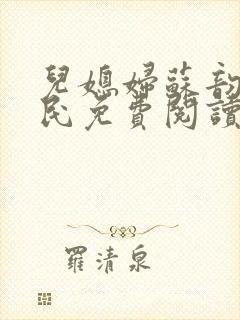 兒媳婦蘇韵
民免費閱讀
羅清泉